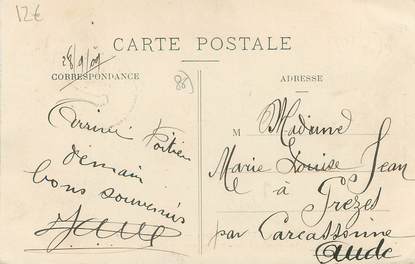 12€
CARTE POSTALE
28/9/09
CORRESPONDANCE
86
ADRESSE
Arrivée Poitiers
demain
bons souvenirs
M Madame
Marie Louise Jean
à
Prézes
par Carcassonne
Aude